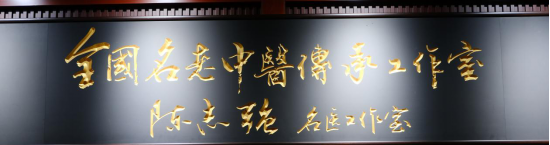 全國名老中醫傳承工作室
陈志强 名医工作室